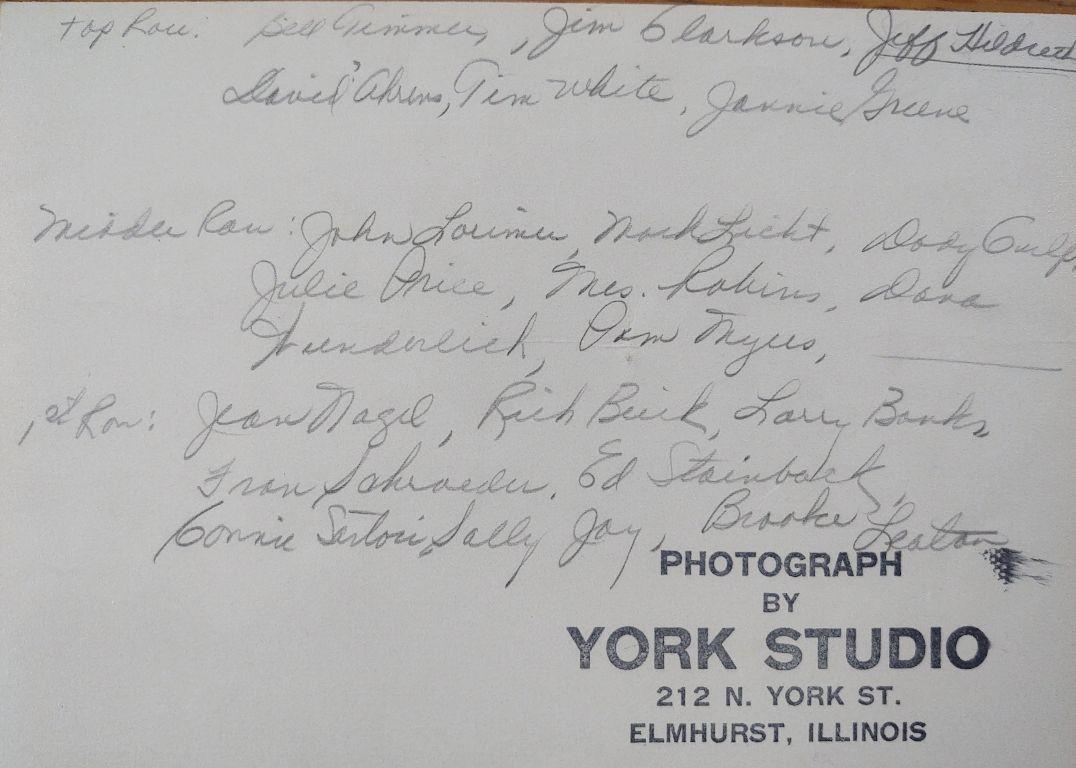 top Row. Bill Timmer, Jim Clarkson, Jeff Hildreth
David Ahrens, Tim White, Jannie Greene
Middle Row: John Lorimer, Mark Licht, Dody Culp,
Julie Price, Mrs. Robins, Dana
Wunderlich, Pam Myers,
1st Row: Jean Nagel, Rich Beick, Larry Banks,
Fran Schroeder, Ed Stainback,
Connie Sartori, Sally Jay, Brooke Leaton
PHOTOGRAPH
BY
YORK STUDIO
212 N. YORK ST.
ELMHURST, ILLINOIS